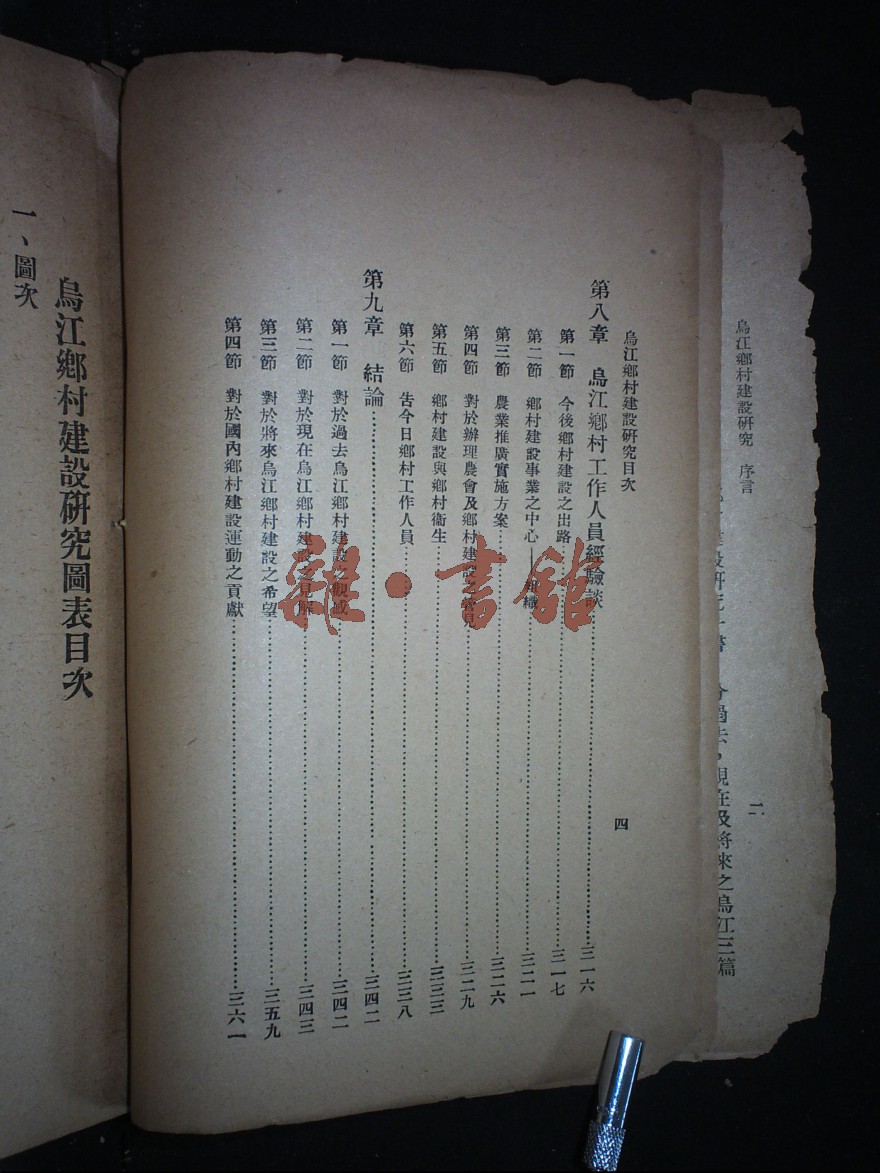 烏江鄉村建設研究 序言
二
今過去，現在及將來之烏江三篇
烏江鄉村建設研究目次
四
第八章 烏江鄉村工作人員經驗談……三一六
第一節 今後鄉村建設之出路……三一七
第二節 鄉村建設事業之中心——組織……三二一
第三節 農業推廣實施方案……三二六
第四節 對於辦理農會及鄉村建設之管見……三二九
第五節 鄉村建設與鄉村衞生……三三三
第六節 告今日鄉村工作人員……三三八
第九章 結論……三四二
第一節 對於過去烏江鄉村建設之觀感……三四二
第二節 對於現在烏江鄉村建設之見解……三四三
第三節 對於將來烏江鄉村建設之希望……三五九
第四節 對於國內鄉村建設運動之貢獻……三六一
烏江鄉村建設研究圖表目次
一、圖次
雜·書館